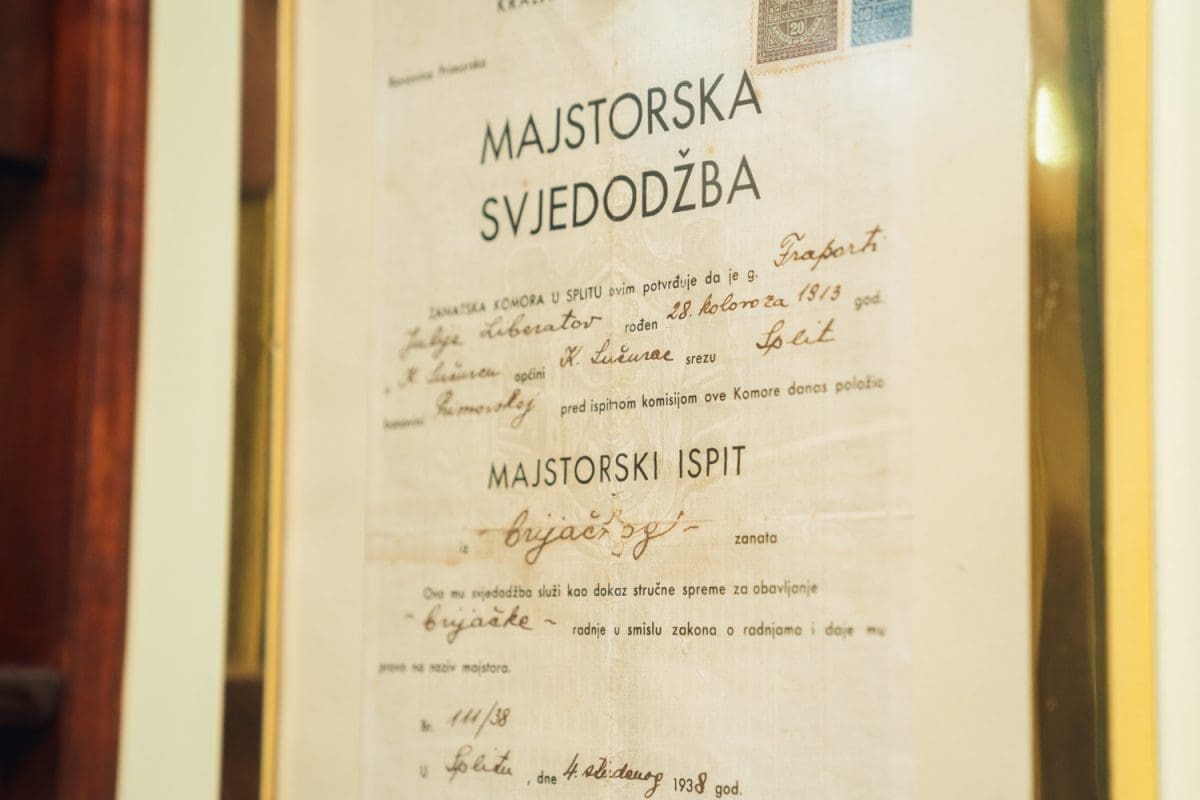 20
Banovina Primorska
MAJSTORSKA
SVJEDODŽBA
ZANATSKA KOMORA U SPLITU ovim potvrđuje da je g. Fraporti
Julije Liberatov rođen 28. kolovoza 1913 god.
K. Sućurcu općini K. Sućurac srezu Split
banovini Primorskoj pred ispitnom komisijom ove Komore danas položio
MAJSTORSKI ISPIT
iz - brijačkog - zanata
Ova mu svjedodžba služi kao dokaz stručne spreme za obavljanje
~ brijačke ~ radnje u smislu zakona o radnjama i daje mu
pravo na naziv majstora.
Br. 111/38
U Splitu, dne 4. studenog 1938 god.